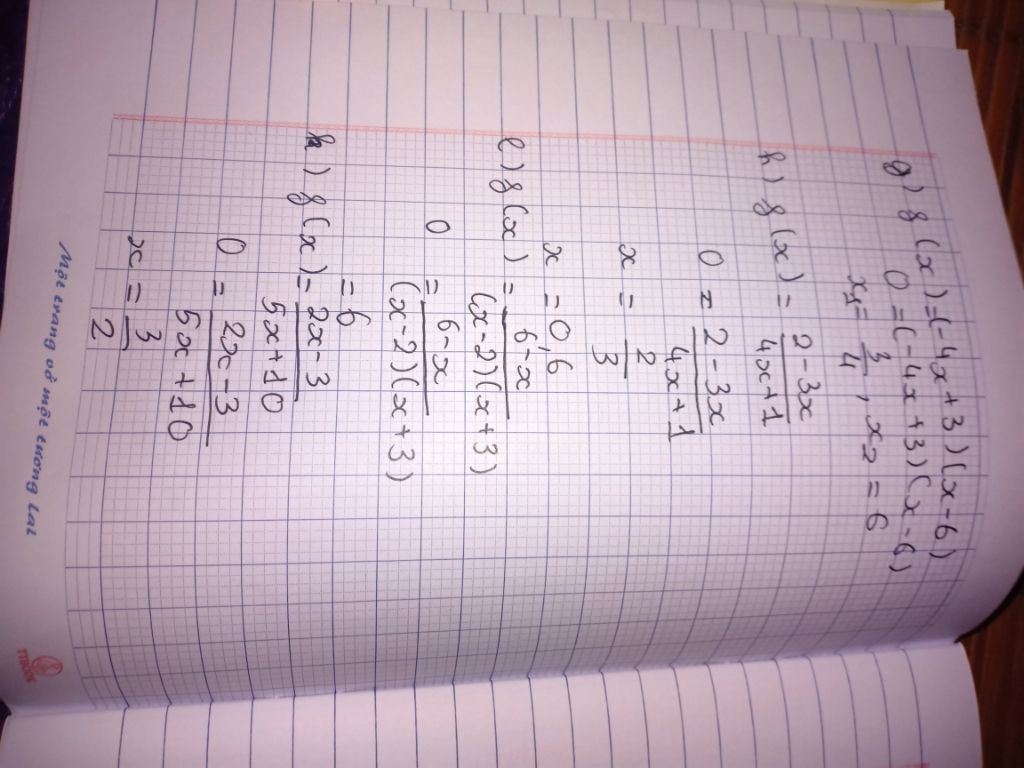 g) f(x)=(-4x+3)(x-6)
0=(-4x+3)(x-6)
x1= 3/4 , x2=6
h) f(x)= 2-3x/4x+1
0 = 2-3x/4x+1
x = 2/3
x = 0,6
l) f(x)= 6-x/(x-2)(x+3)
0 = 6-x/(x-2)(x+3)
=6
k) f(x)= 2x-3/5x+10
0 = 2x-3/5x+10
x = 3/2
Một trang vở một tương lai